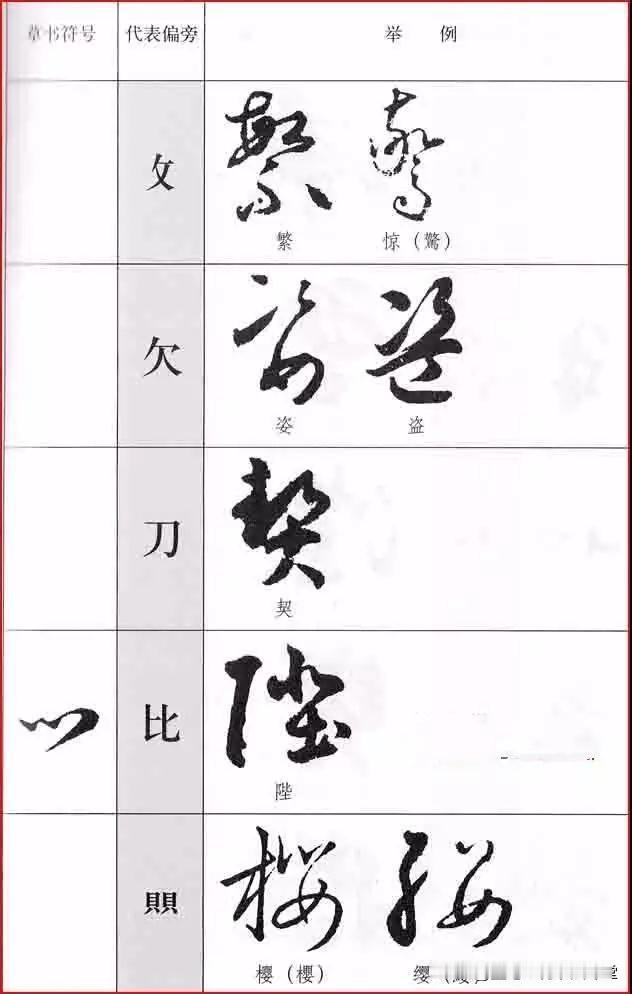 草书符号 代表偏旁 举 例
攵 繁 惊（驚）
欠 姿 盗
刀 契
比 陛
賏 樱（櫻） 缨
堂